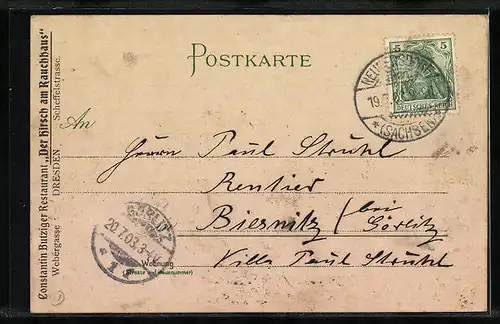 Constantin Butziger Restaurant „Der Hirsch am Rauchhaus“
Webergasse DRESDEN Scheffelstrasse.
POSTKARTE
5 5
DEUTSCHES REICH
19.
(SACHSEN)
An
Herrn Paul Strühl
Rentier
Biesnitz / bei Görlitz
Villa Paul Strühl
GÖRLITZ
20.7.03.3-
1
Wohnung
(Strasse und Hausnummer)